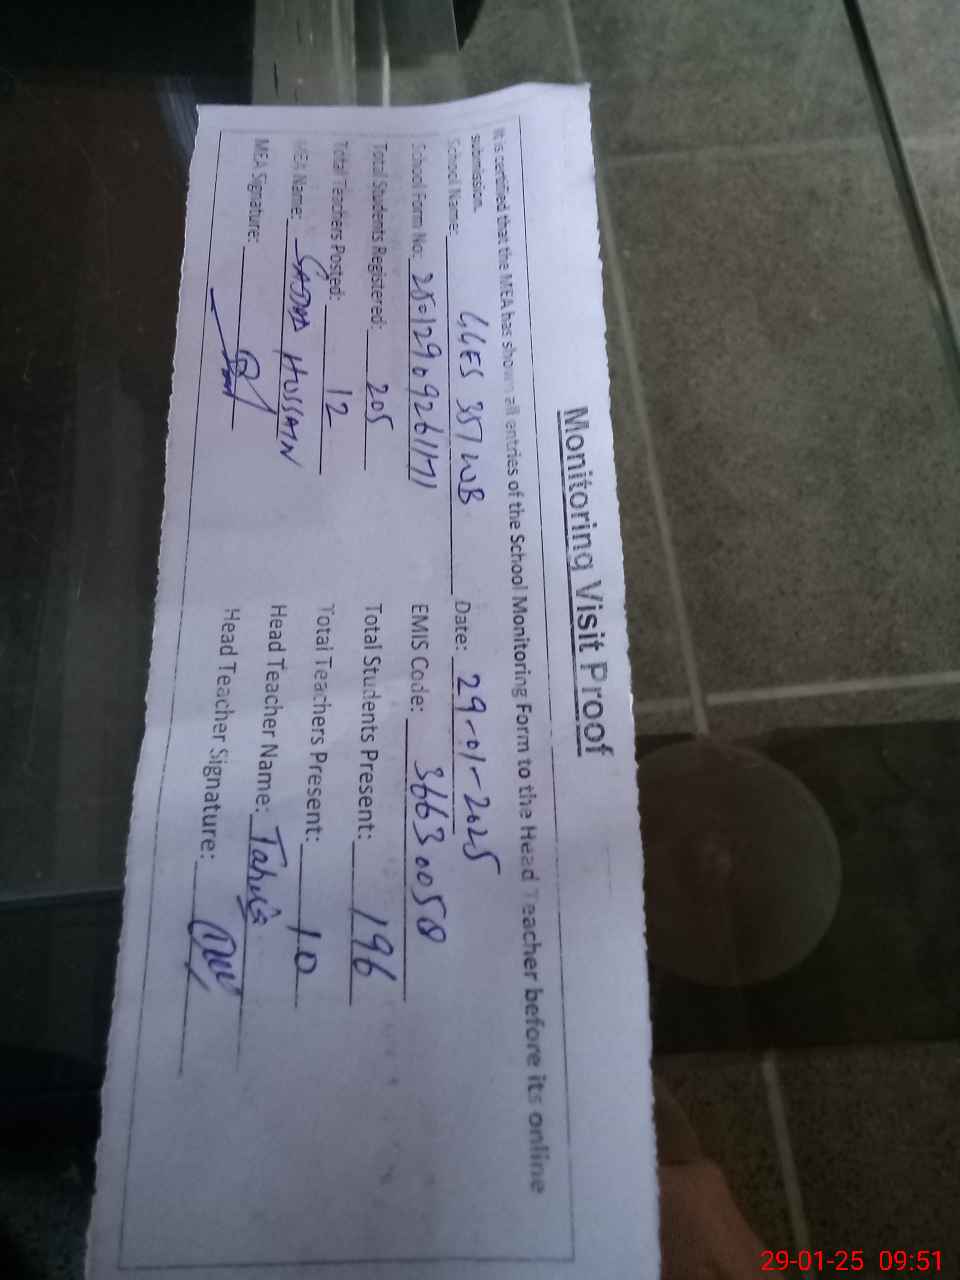 Monitoring Visit Proof
It is certified that the MEA has shown all entries of the School Monitoring Form to the Head Teacher before its online
submission.
School Name: GGES 357 WB Date: 29-01-2025
School Form No: 25012909261171 EMIS Code: 36630058
Total Students Registered: 205 Total Students Present: 196
Total Teachers Posted: 12 Total Teachers Present: 10
MEA Name: HUSSAIN Head Teacher Name:
MEA Signature: Head Teacher Signature:
29-01-25 09:51